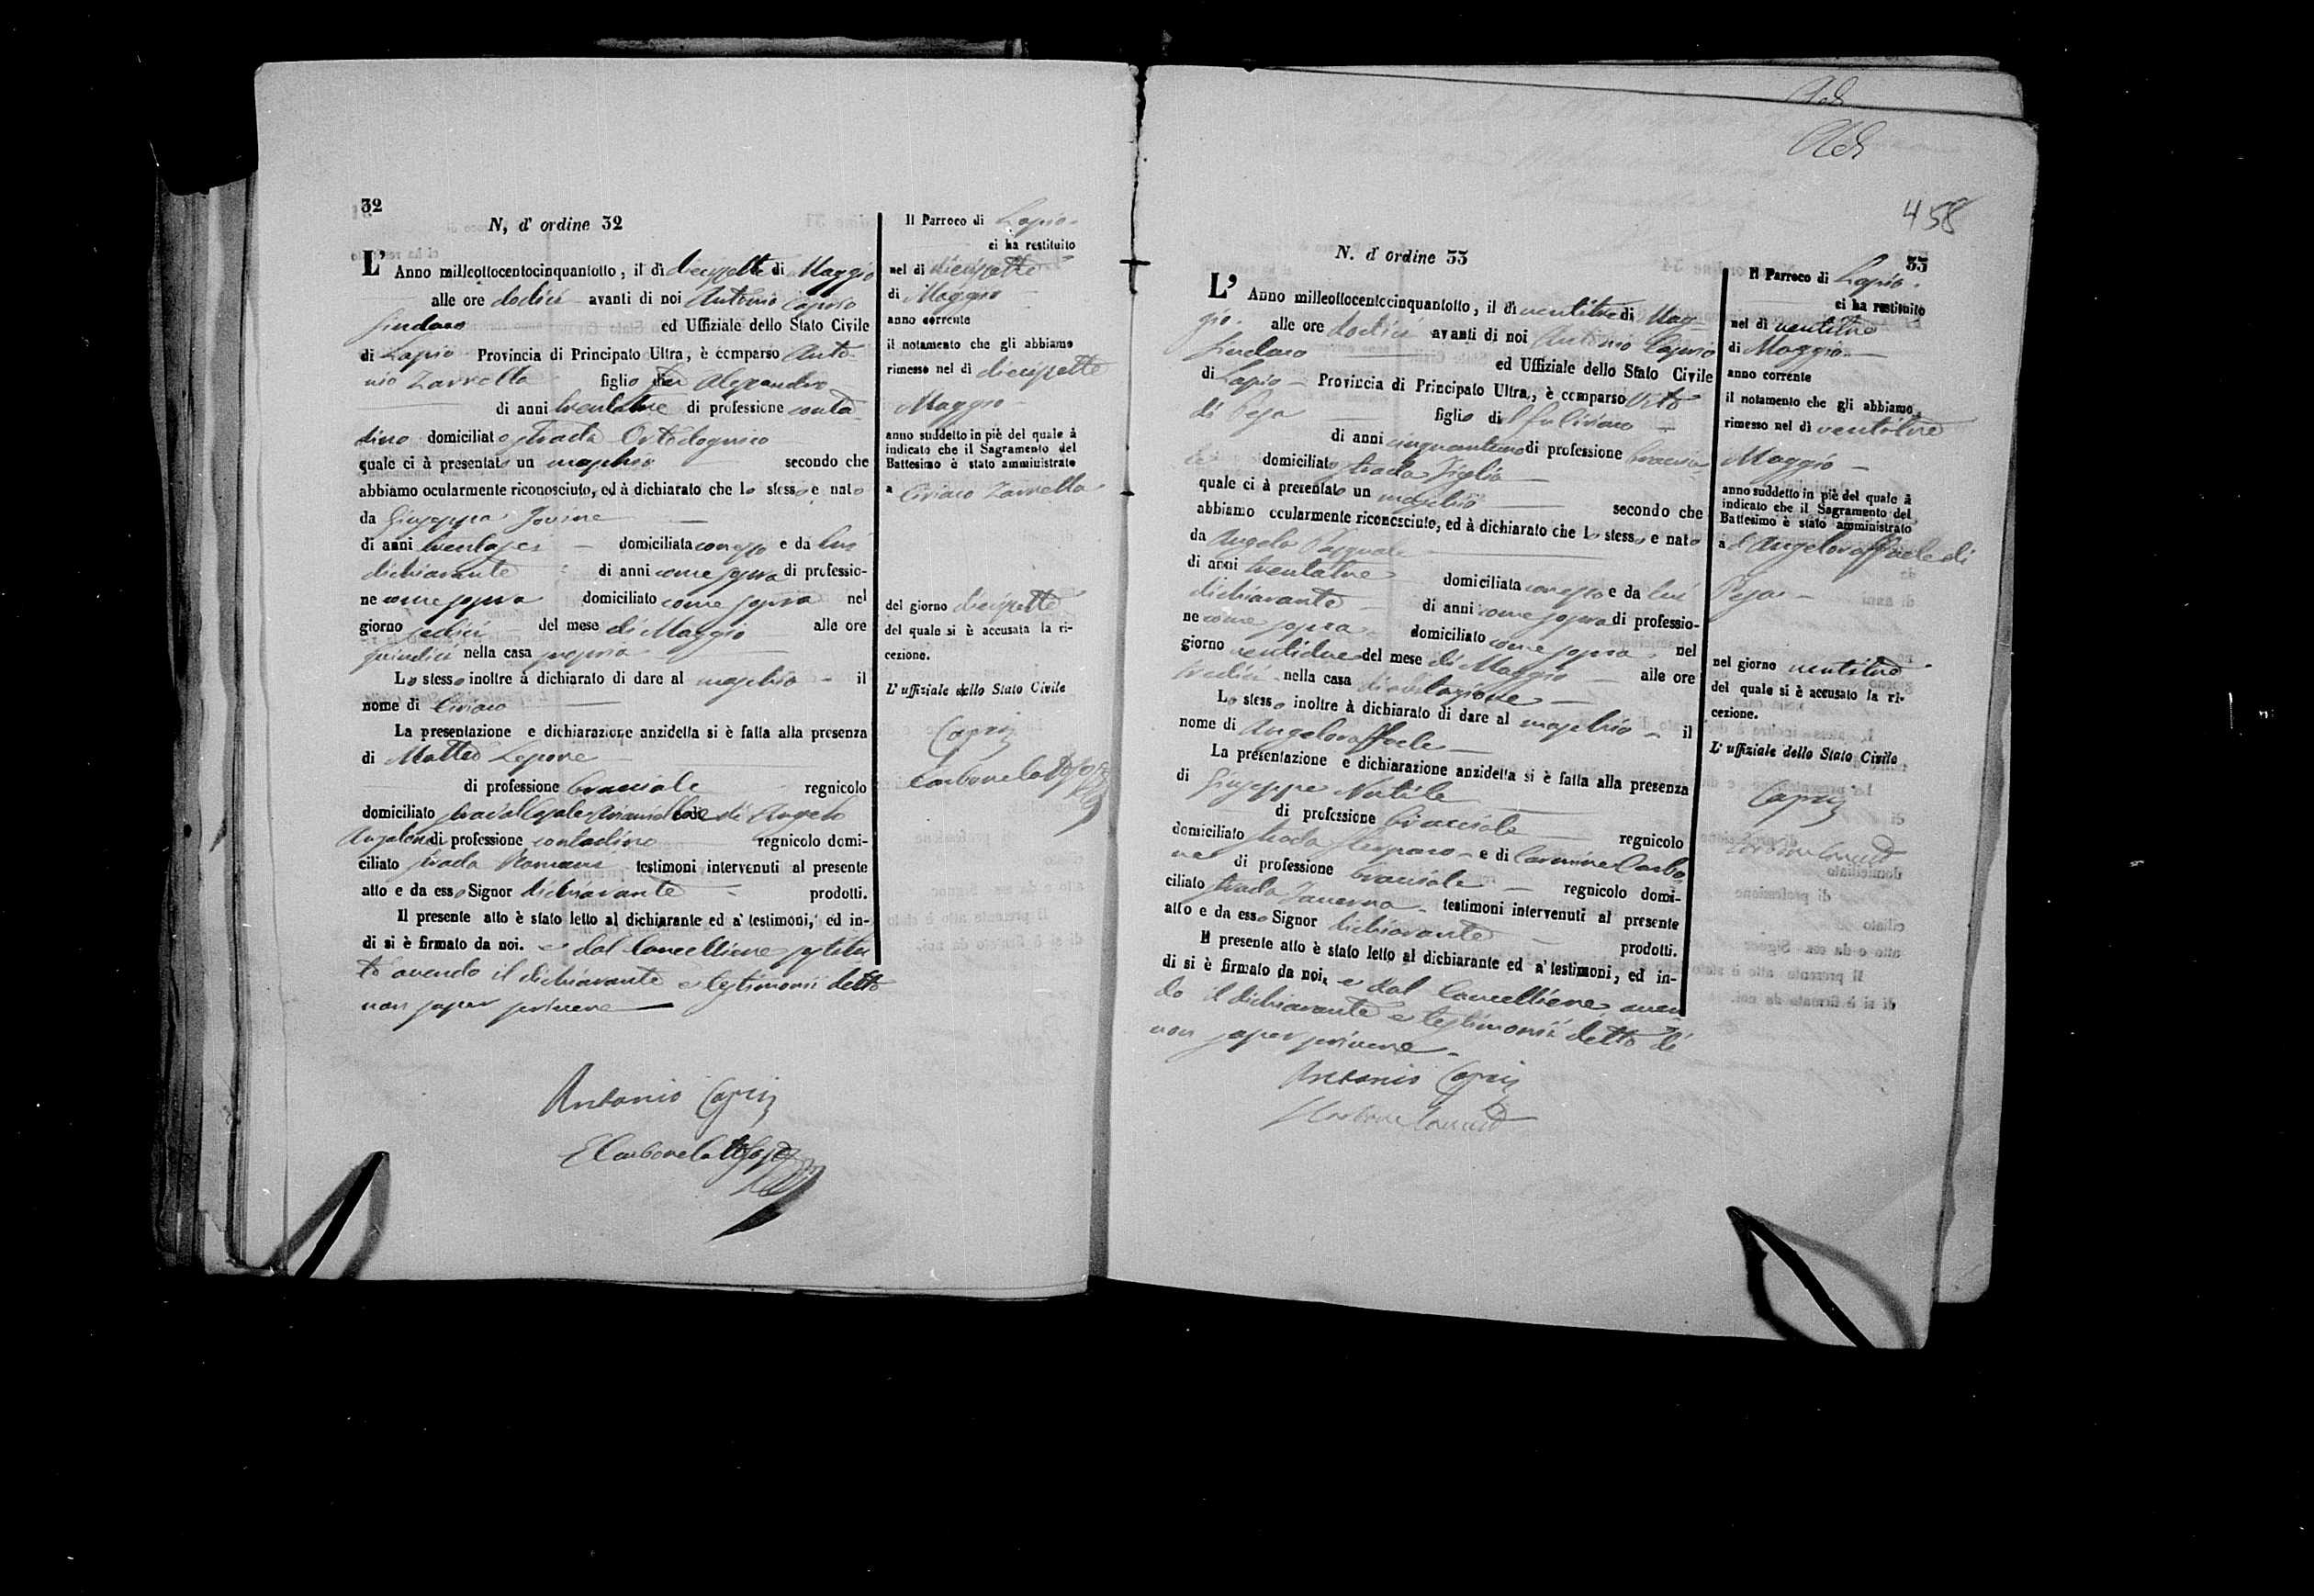 32
N, d' ordine 32
L' Anno milleottocentocinquantotto, il dì diecissette di Maggio
alle ore dodici avanti di noi Antonio Caprio
Sindaco ed Uffiziale dello Stato Civile
di Lapio Provincia di Principato Ultra, è comparso Anto-
nio Zarrella figlio di Alessandro
di anni trentatre di professione conta
dino domiciliato strada
quale ci à presentato un maschio secondo che
abbiamo ocularmente riconosciuto, ed à dichiarato che lo stesso e nato
da Giuseppa Iovine
di anni trentasei domiciliata con esso e da lui
dichiarante di anni come sopra di professio-
ne come sopra domiciliato come sopra nel
giorno sedici del mese di Maggio alle ore
quindici nella casa propria
Lo stesso inoltre à dichiarato di dare al maschio il
nome di Ciriaco
La presentazione e dichiarazione anzidetta si è fatta alla presenza
di Matteo Lepore
di professione bracciale regnicolo
domiciliato di Angelo
di professione contadino regnicolo domi-
ciliato strada testimoni intervenuti al presente
atto e da esso Signor dichiarante prodotti.
Il presente atto è stato letto al dichiarante ed a' testimoni, ed in-
di si è firmato da noi. e dal Cancelliere sostitu
to avendo il dichiarante e testimonii detto
non saper scrivere
Antonio Caprio
Il Parroco di Lapio
ci ha restituito
nel dì diecissette
di Maggio
anno corrente
il notamento che gli abbiamo
rimesso nel dì diecissette
Maggio
anno suddetto in piè del quale à
indicato che il Sagramento del
Battesimo è stato amministrato
a Ciriaco Zarrella
del giorno diecissette
del quale si è accusata la ri-
cezione.
L' uffiziale dello Stato Civile
Caprio
458
N. d' ordine 33
33
L' Anno milleottocentocinquantotto, il dì ventitre di Mag-
gio. alle ore dodici avanti di noi Antonio Caprio
Sindaco ed Uffiziale dello Stato Civile
di Lapio Provincia di Principato Ultra, è comparso Vito
di Pesa figlio di
di anni cinquantuno di professione braccia-
le domiciliato strada
quale ci à presentato un maschio secondo che
abbiamo ocularmente riconosciuto, ed à dichiarato che lo stesso e nato
da Angela Pasquale
di anni trentatre domiciliata con esso e da lui
dichiarante di anni come sopra di professio-
ne come sopra domiciliato come sopra nel
giorno ventidue del mese di Maggio alle ore
tredici nella casa di abitazione
Lo stesso inoltre à dichiarato di dare al maschio il
nome di Angeloraffaele
La presentazione e dichiarazione anzidetta si è fatta alla presenza
di Giuseppe
di professione bracciale regnicolo
domiciliato strada e di Carmine Carbo-
ne di professione bracciale regnicolo domi-
ciliato strada Taverna testimoni intervenuti al presente
atto e da esso Signor dichiarante prodotti.
Il presente atto è stato letto al dichiarante ed a' testimoni, ed in-
di si è firmato da noi. e dal Cancelliere, aven-
do il dichiarante e testimonii detto di
non saper scrivere
Antonio Caprio
Il Parroco di Lapio.
ci ha restituito
nel dì ventitre
di Maggio
anno corrente
il notamento che gli abbiamo
rimesso nel dì ventitre
Maggio
anno suddetto in piè del quale à
indicato che il Sagramento del
Battesimo è stato amministrato
a Angeloraffaele di
Pesa
nel giorno ventitre
del quale si è accusato la ri-
cezione.
L' uffiziale dello Stato Civile
Caprio